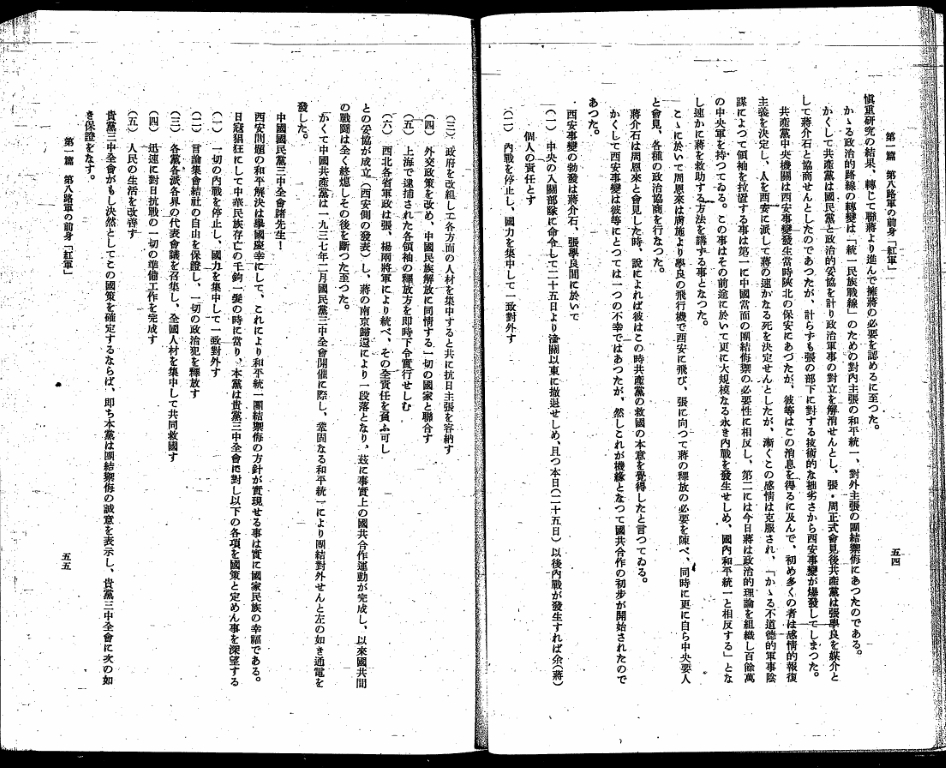 第一篇　第八路軍の前身「紅軍」
五四
慎重研究の結果、轉じて聯蔣より進んで擁蔣の必要を認めるに至つた。
かゝる政治的路線の轉變は「統一民族戰線」のための對內主張の和平統一、對外主張の團結禦侮にあつたのである。
かくして共產黨は國民黨と政治的妥協を計り政治軍事の對立を解消せんとし、張・周正式會見後共產黨は張學良を媒介と
して蔣介石と協商せんとしたのであつたが、計らずも張の部下に對する技術的な拙劣さから西安事變が爆發してしまつた。
共產黨中央機關は西安事變發生當時陝北の保安にあづたが、彼等はこの消息を得るに及んで、初め多くの者は感情的報復
主義を決定し、人を西安に派して蔣の速かなる死を決定せんとしたが、漸くこの感情は克服され、「かゝる不道德的軍事陰
謀によつて領袖を拉置する事は第一に中國當面の團結侮禦の必要性に相反し、第二には今日蔣は政治的理論を組織し百餘萬
の中央軍を持つてゐる。この事はその前途に於いて更に大規模なる永き內戰を發生せしめ、國內和平統一と相反する」とな
し速かに蔣を救助する方法を講ずる事となつた。
こゝに於いて周恩來は周旋により學良の飛行機で西安に飛び、張に向つて蔣の釋放の必要を陳べ、同時に更に自ら中央要人
と會見、各種の政治協商を行なつた。
蔣介石は周恩來と會見した時、說によれば彼はこの時共產黨の救國の本意を覺得したと言つてゐる。
かくして西安事變は彼等にとつては一つの不幸ではあつたが、然しこれが機緣となつて國共合作の初步が開始されたので
あつた。
西安事變の勃發は蔣介石、張學良間に於いて
（一）　中央の入關部隊に命令して二十五日より潼關以東に撤退せしめ、且つ本日（二十五日）以後內戰が發生すれば余（蔣）
個人の責任とす
（二）　內戰を停止し、國力を集中して一致對外す
（三）　政府を改組して各方面の人材を集中すると共に抗日主張を容納す
（四）　外交政策を改め、中國民族解放に同情する一切の國家と聯合す
（五）　上海で逮捕された各領袖の釋放方を卽時下令實行せしむ
（六）　西北各省軍政は張、楊兩將軍により統べ、その全責任を負ふ可し
との妥協が成立（西安側の發表）し、蔣の南京歸還により一段落となり、茲に事實上の國共合作運動が完成し、以來國共間
の戰鬪は全く終熄しその後を斷つた至つた。
かくて中國共產黨は一九三七年二月國民黨三中全會開催に際し、鞏固なる和平統一により團結對外せんと左の如き通電を
發した。
中國國民黨三中全會諸先生！
西安問題の和平解決は擧國慶幸にして、これにより和平統一團結禦侮の方針が實現せる事は實に國家民族の幸福である。
日寇猖狂にして中華民族存亡の千鈞一髮の時に當り、本黨は貴黨三中全會に對し以下の各項を國策と定めん事を深望する
（一）　一切の內戰を停止し、國力を集中して一致對外す
（二）　言論集會結社の自由を保證し、一切の政治犯を釋放す
（三）　各黨各派各界の代表會議を召集し、全國人材を集中して共同救國す
（四）　迅速に對日抗戰の一切の準備工作を完成す
（五）　人民の生活を改善す
貴黨三中全會がもし決然としてこの國策を確定するならば、卽ち本黨は團結禦侮の誠意を表示し、貴黨三中全會に次の如
き保證をなす。
第一篇　第八路軍の前身「紅軍」
五五